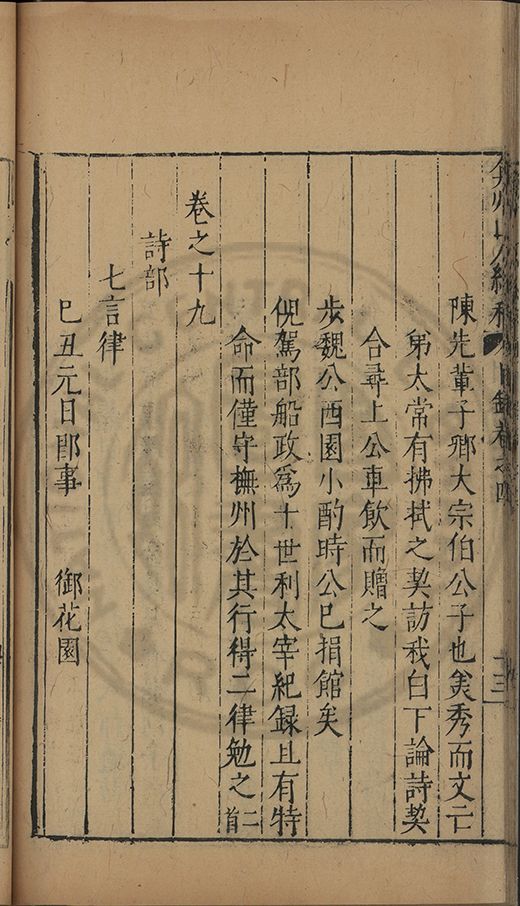 弇州山人續稿 目錄卷之四 十三
陳先輩子卿大宗伯公子也美秀而文二
弟太常有拂拭之契訪我白下論詩契
合尋上公車飲而贈之
步魏公西園小酌時公已捐館矣
倪駕部船政為十世利太宰紀録且有特
命而僅守撫州於其行得二律勉之二首
卷之十九
詩部
七言律
巳丑元日即事 御花園